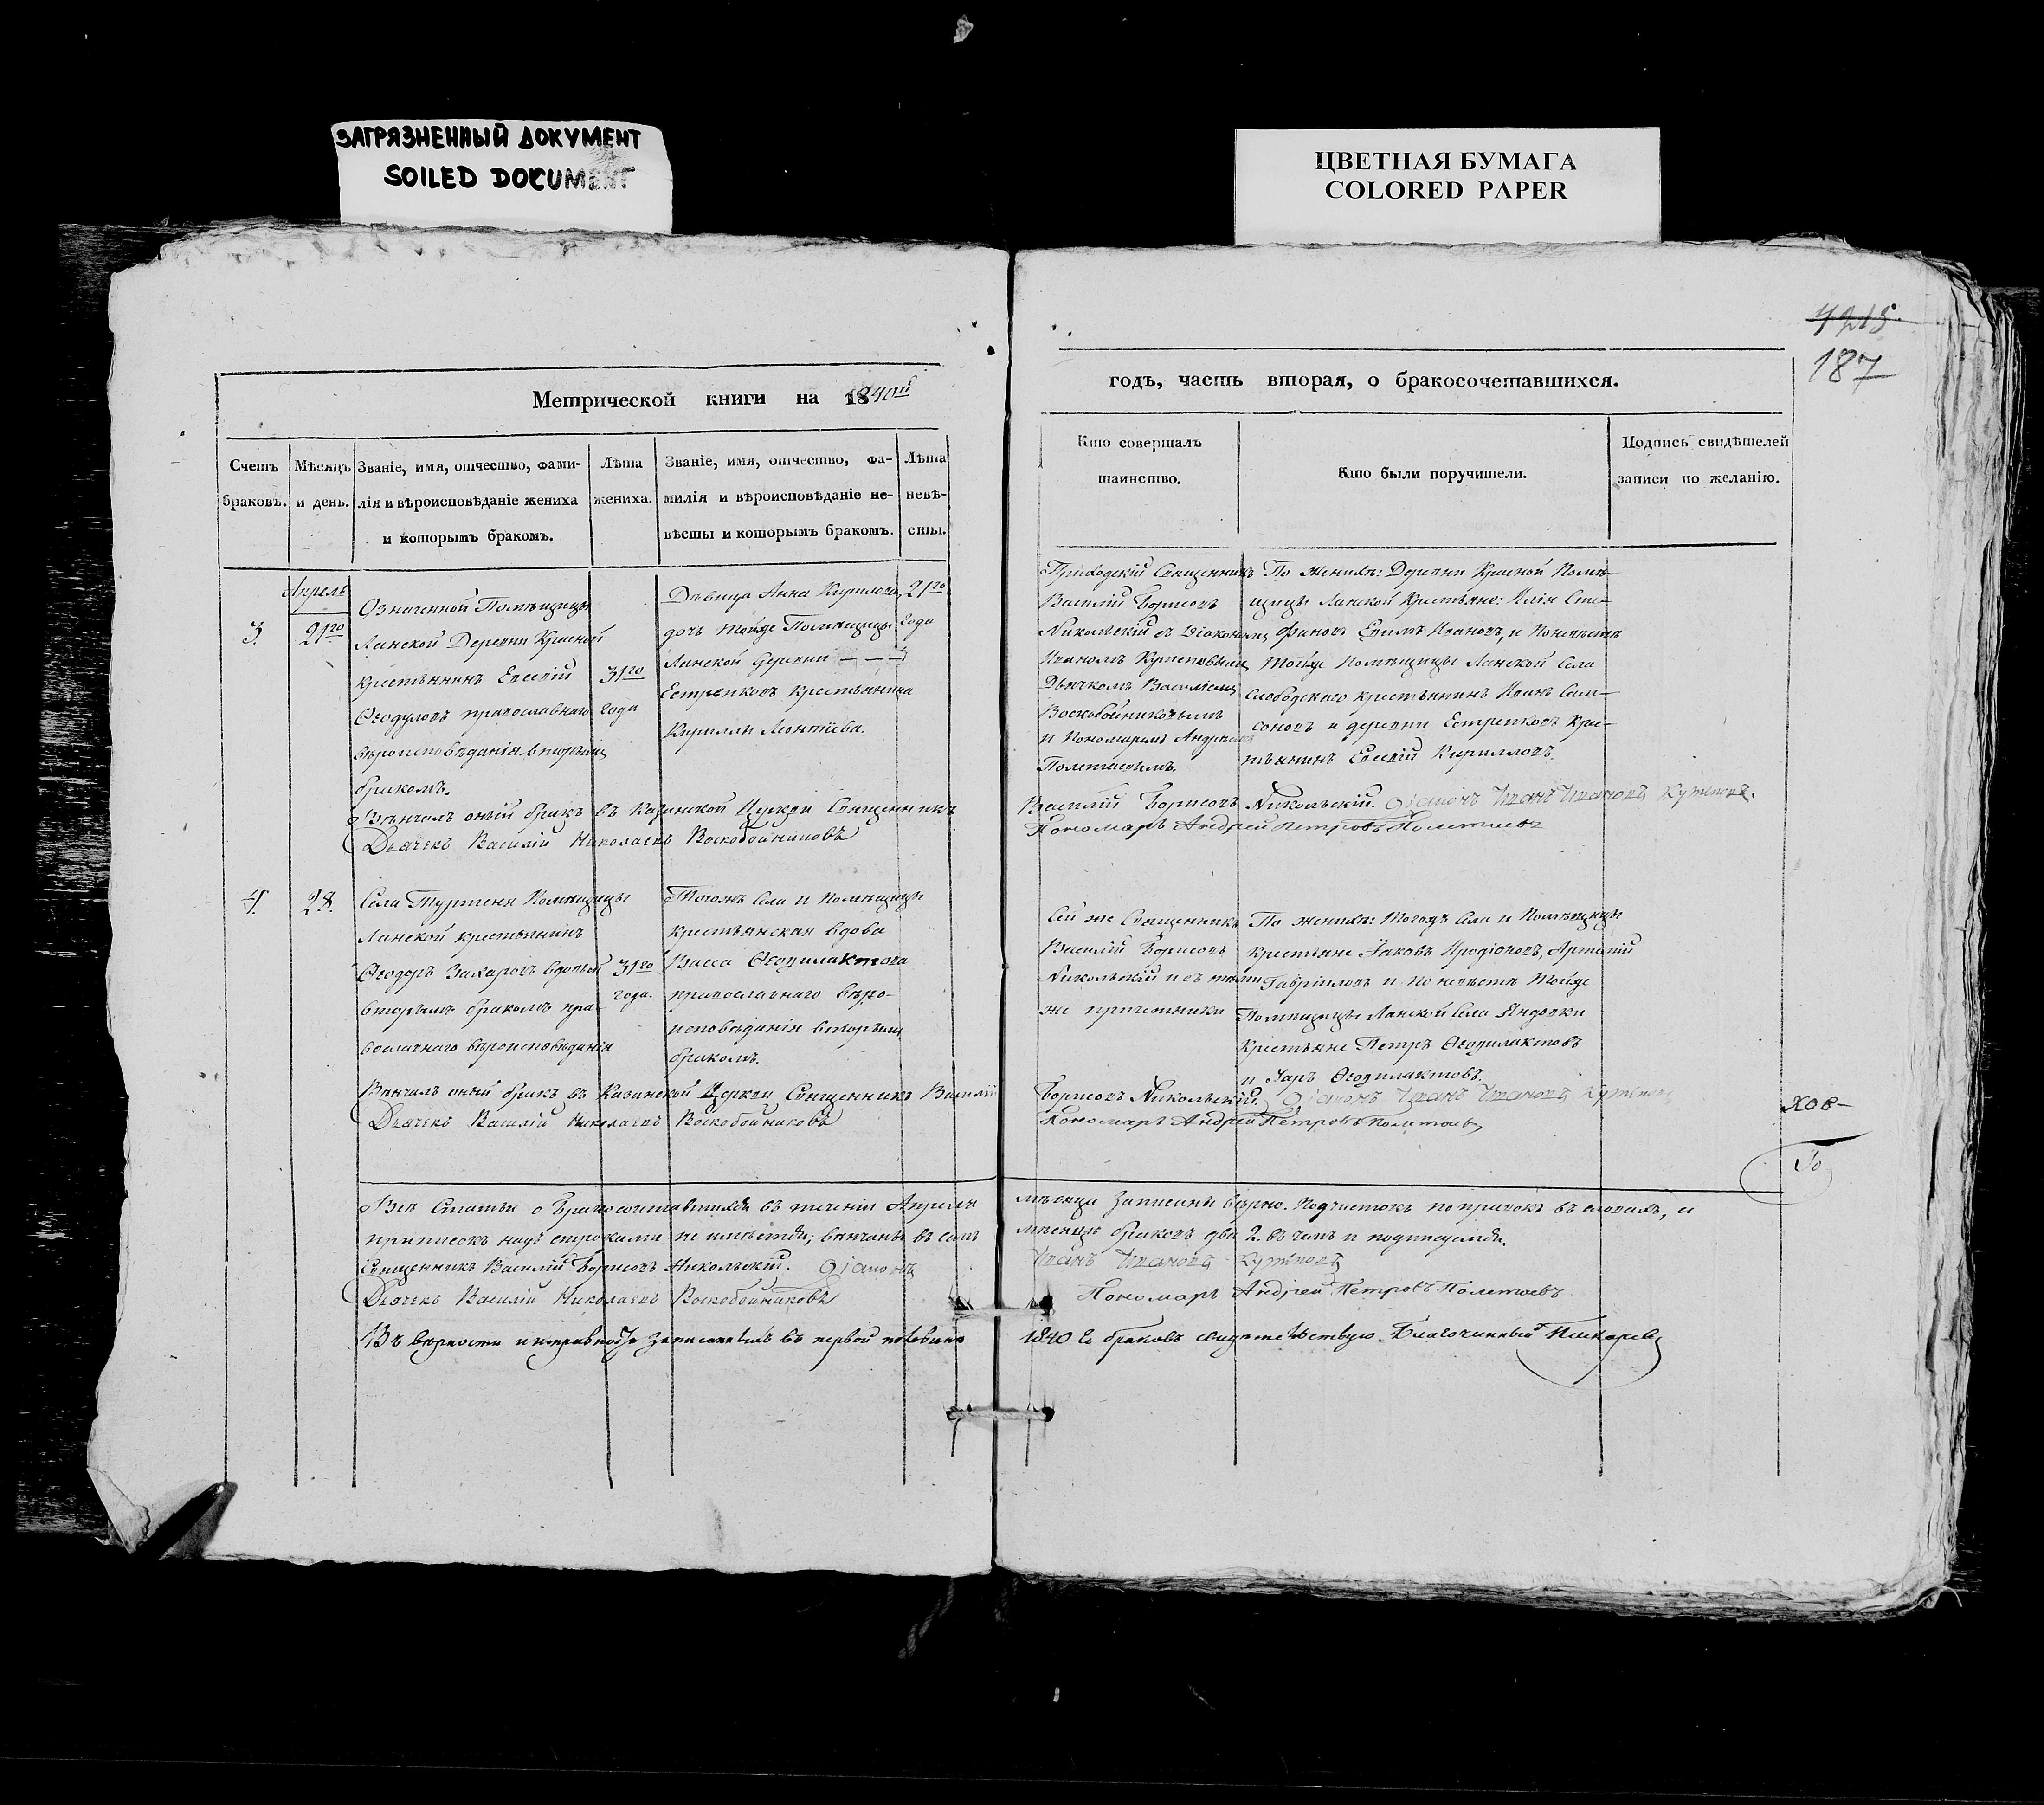 ЗАГРЯЗНЕННЫЙ ДОКУМЕНТ
SOILED DOCUMENT
ЦВЕТНАЯ БУМАГА
COLORED PAPER
4215
187
Метрической книги на 1840й
Счетъ браковъ.
Мѣсяцъ и день.
Званіе, имя, отчество, фами-
лія и вѣроисповѣданіе жениха
и которымъ бракомъ.
Лѣта
жениха.
Званіе, имя, отчество, фа-
милія и вѣроисповѣданіе не-
вѣсты и которымъ бракомъ.
Лѣта
невѣ-
сты.
Апрель
3.
21го
Означенной Помѣщицы
Ланской Деревни Красной
крестьянинъ Евсевій
Ѳеодуловъ православнаго
вѣроисповѣданія вторымъ
бракомъ.
31го
года
Дѣвица Анна Кирилова,
дочь тойже Помѣщицы
Ланской деревни
Естребковъ крестьянина
Кирилла Леонтіева.
21го
года
Вѣнчалъ оный бракъ въ Казанской Церкви Священникъ
Дьячекъ Василій Николаевъ Воскобойниковъ
4.
28.
Села Помѣщицы
Ланской крестьянинъ
Ѳеодоръ Захаровъ вдовый
вторымъ бракомъ пра-
вославнаго вѣроисповѣданія
31го
года.
Тогожъ Села и Помѣщицы
крестьянская вдова
Васса Ѳеофилактова
православнаго вѣро-
исповѣданія вторымъ
бракомъ.
Вѣнчалъ оный бракъ въ Казанской Церкви Священникъ Василій
Дьячекъ Василій Николаевъ Воскобойниковъ
Всѣ Статьи о бракосочетавшихся въ теченіи Апреля
приписокъ надъ строками не имѣется; вѣнчано въ семъ
Священникъ Василій Борисовъ Никольскій. Діаконъ
Дьячекъ Василій Николаевъ Воскобойниковъ
Въ вѣрности и исправности записанныхъ въ первой половинѣ
годъ, часть вторая, о бракосочетавшихся.
Кто совершалъ
таинство.
Кто были поручители.
Подпись свидѣтелей
записи по желанію.
Приходскій Священникъ
Василій Борисовъ
Никольскій съ Діакономъ
Иваномъ Кутеповымъ
Дьячкомъ Василіемъ
Воскобойниковымъ
и Пономаремъ Андреемъ
Полетаевымъ.
По Женихѣ: Деревни Красной Помѣ-
щицы Ланской Крестьяне: Илія Сте-
фановъ Ефимъ Ивановъ, и По невѣстѣ
Тойже Помѣщицы Ланской Села
Слободскаго крестьянинъ Иванъ Сам-
соновъ и деревни Естребковъ Кре-
стьянинъ Евсевій Кирилловъ.
Василій Борисовъ Никольскій. Діаконъ Иванъ Ивановъ Кутеповъ.
Пономарь Андрей Петровъ Полетаевъ
Сей же Священникъ
Василій Борисовъ
Никольскій и съ тѣми
же причетники
По женихѣ: тогожъ Села и Помѣщицы
Крестьяне Іаковъ Иродіоновъ, Артемій
Гавріиловъ и По невѣстѣ Тойже
Помѣщицы Ланской Села Яндовки
Крестьяне Петръ Ѳеофилактовъ
и Уаръ Ѳеофилактовъ.
Борисовъ Никольскій. Діаконъ Иванъ Ивановъ Кутеповъ
Пономарь Андрей Петровъ Полетаевъ
мѣсяца записаны вѣрно. Подчистокъ поправокъ въ словахъ, и
мѣсяцѣ браковъ два 2. въ чемъ и подписуемся.
Иванъ Ивановъ Кутеповъ
Пономарь Андрей Петровъ Полетаевъ
1840 го браковъ свидѣтельствую. Благочинный